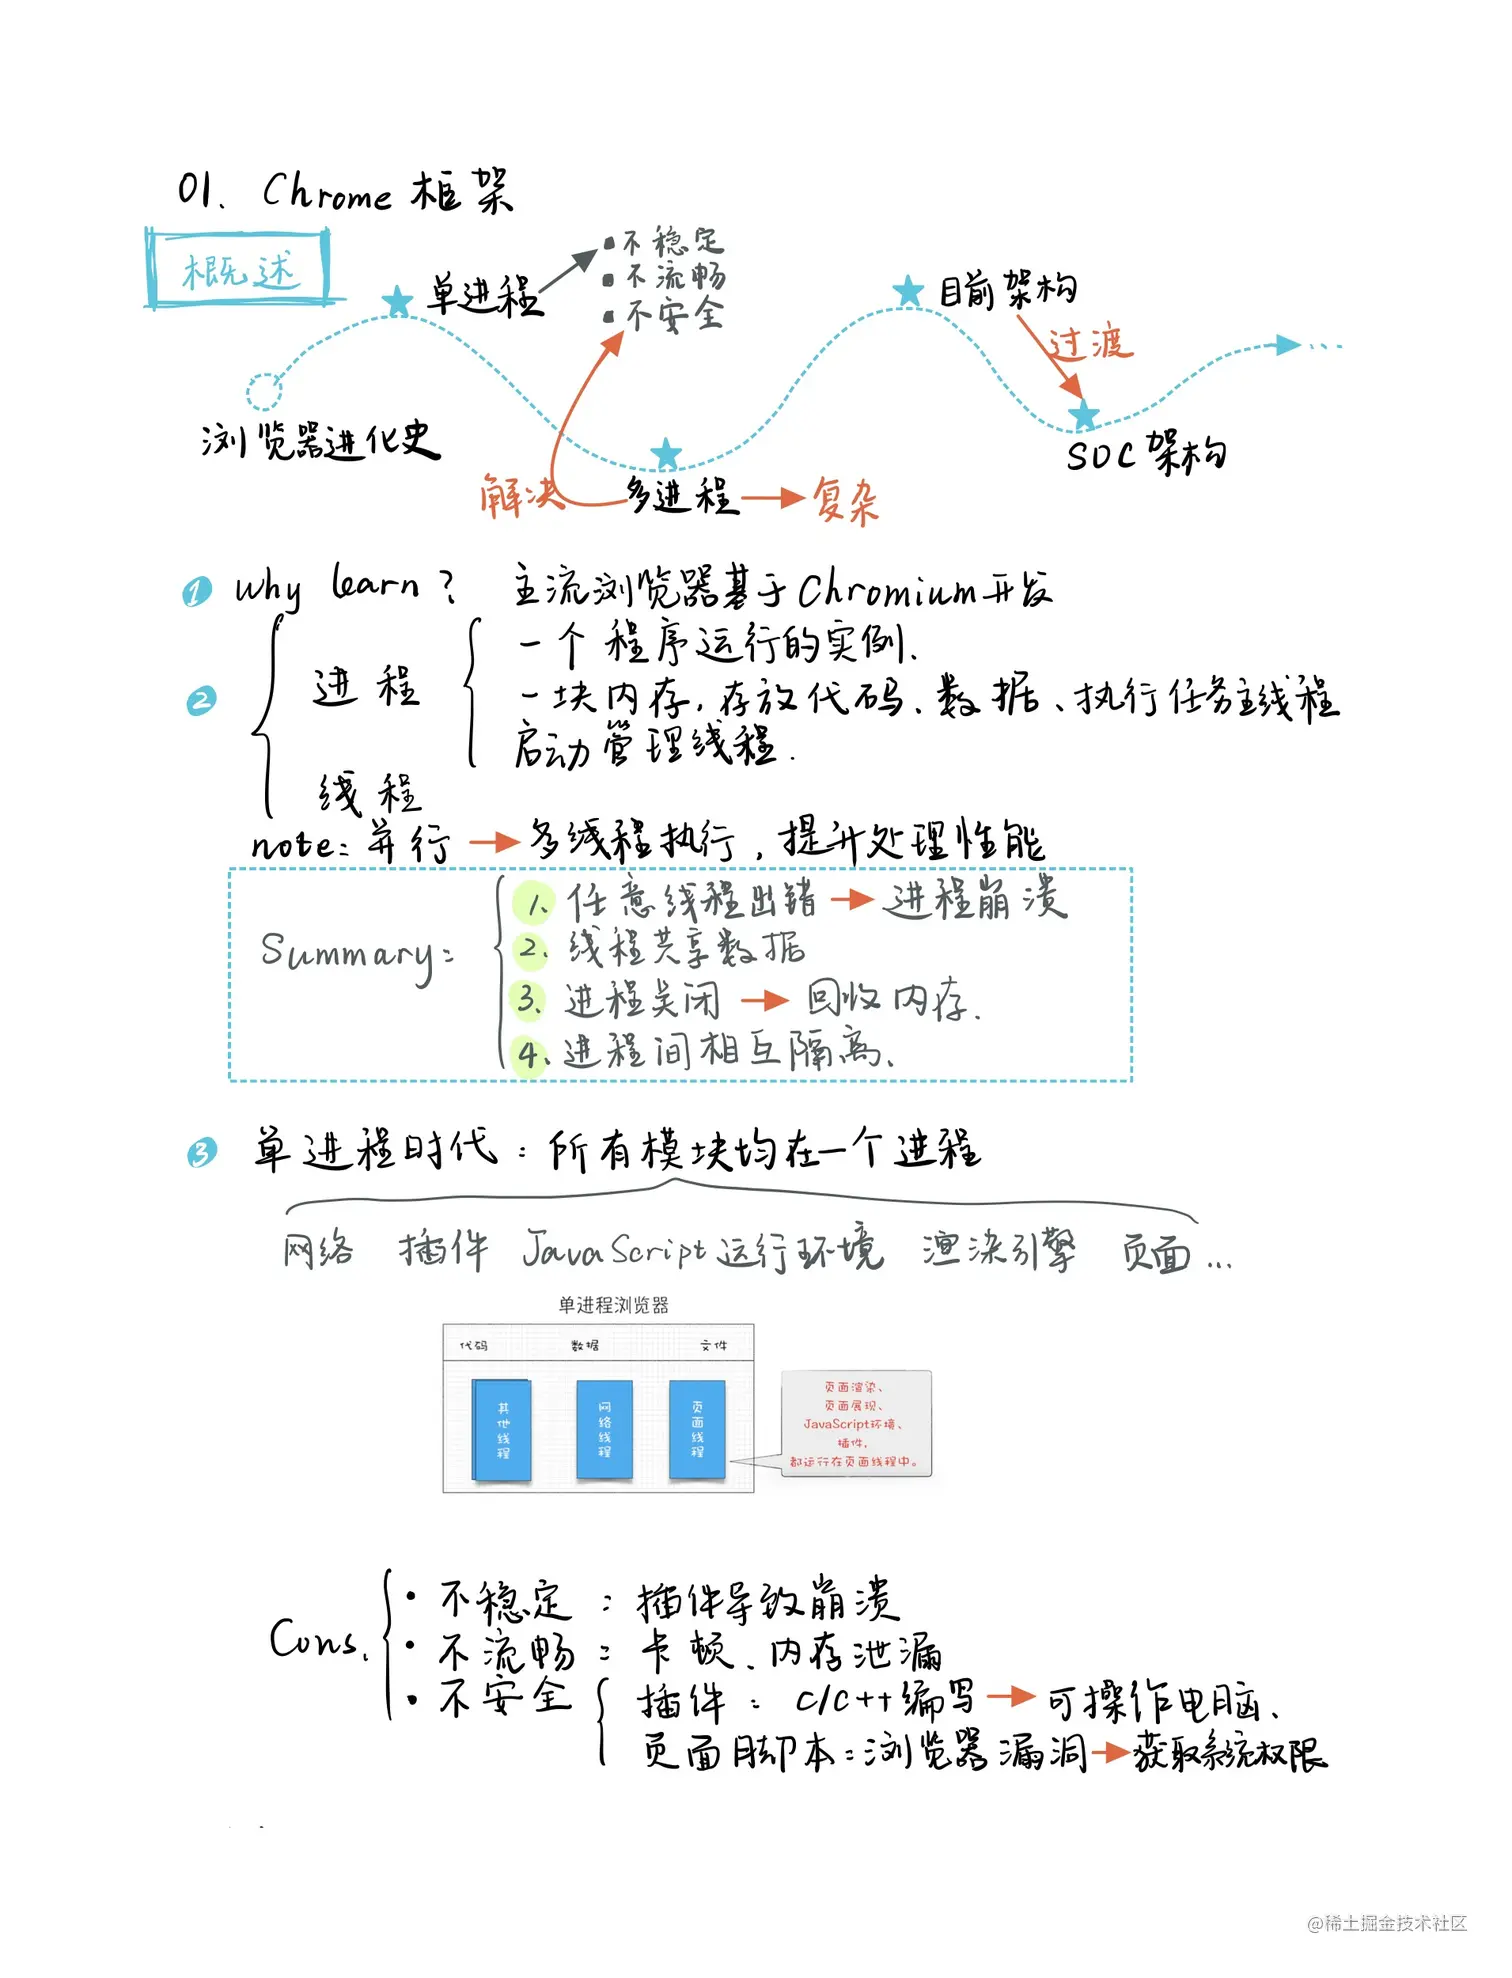 01. Chrome 框架
概述
单进程
不稳定
不流畅
不安全
目前架构
过渡
浏览器进化史
SOC架构
解决
多进程
复杂
1 why learn? 主流浏览器基于Chromium开发
一个程序运行的实例.
2 进程
一块内存,存放代码、数据、执行任务主线程
启动管理线程.
线程
note: 并行 → 多线程执行,提升处理性能
Summary:
1. 任意线程出错 → 进程崩溃
2. 线程共享数据
3. 进程关闭 → 回收内存.
4. 进程间相互隔离.
3 单进程时代:所有模块均在一个进程
网络 插件 JavaScript运行环境 渲染引擎 页面...
单进程浏览器
代码 数据 文件
其他线程 网络线程 页面线程
页面渲染、
页面展现、
JavaScript环境、
插件,
都运行在页面线程中。
Cons.
· 不稳定:插件导致崩溃
· 不流畅:卡顿、内存泄漏
· 不安全
插件:C/C++编写 → 可操作电脑、
页面脚本:浏览器漏洞 → 获取系统权限
@稀土掘金技术社区